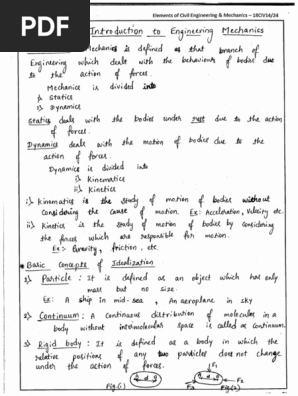 PDF
Elements of Civil Engineering & Mechanics – 18CIV14/24
Introduction to Engineering Mechanics
Mechanics is defined as that branch of
Engineering which dealt with the behaviours of bodies due
to the action of forces.
Mechanics is divided into
i) Statics
ii) Dynamics
Statics deals with the bodies under rest due to the action
of forces.
Dynamics deals with the motion of bodies due to the
action of forces.
Dynamics is divided into
i) Kinematics
ii) Kinetics
i) Kinematics is the study of motion of bodies without
considering the cause of motion. Ex: Acceleration, Velocity etc.
ii) Kinetics is the study of motion of bodies by considering
the forces which are responsible for motion.
Ex:- Gravity, friction, etc.
Basic Concepts of Idealization
1) Particle : It is defined as an object which has only
mass but no size.
Ex: A ship in mid-sea, An aeroplane in sky
2) Continuum : A continuous distribution of molecules in a
body without intermolecular space is called as continuum.
3) Rigid body : It is defined as a body in which the
relative positions of any two particles does not change
under the action of forces.
Fig:(1)
F1
F2
F3
Fig:(2)